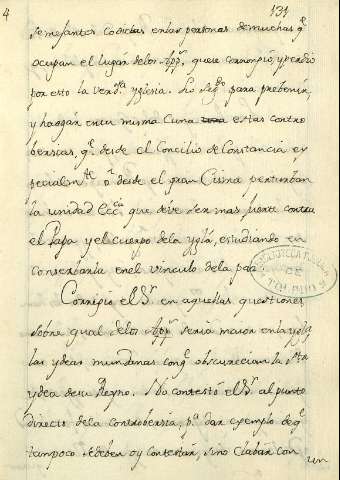 4
131
semejantes codicias en las personas de muchas q.e
ocupan el lugar de los App.s que se corrompió, y perdió
por esto la verd.ra yglesia. Lo seg.do para prebenir,
y haogar en su misma Cuna estas contro
bersias, q.e desde el Concilio de Constancia, es
pecialm.te desde el gran Cisma perturban
la unidad Ecc.ca que deve ser mas fuerte contra
el Papa y el cuerpo de la ygl.a, estudiando en
conserbarla en el vinculo de la paz.
Corrigio el S.r en aquellas questiones
sobre qual de los App.s seria maior en la ygl.a
las ydeas mundanas con q.e obscurecian la S.ta
ydea de su Reyno. No contestó el S.r al punto
directo de la controbersia, p.a dar exemplo de q.e
tampoco se deben oy contestar, sino clabar con
un
BIBLIOTECA PUBLICA
DE
TOLEDO